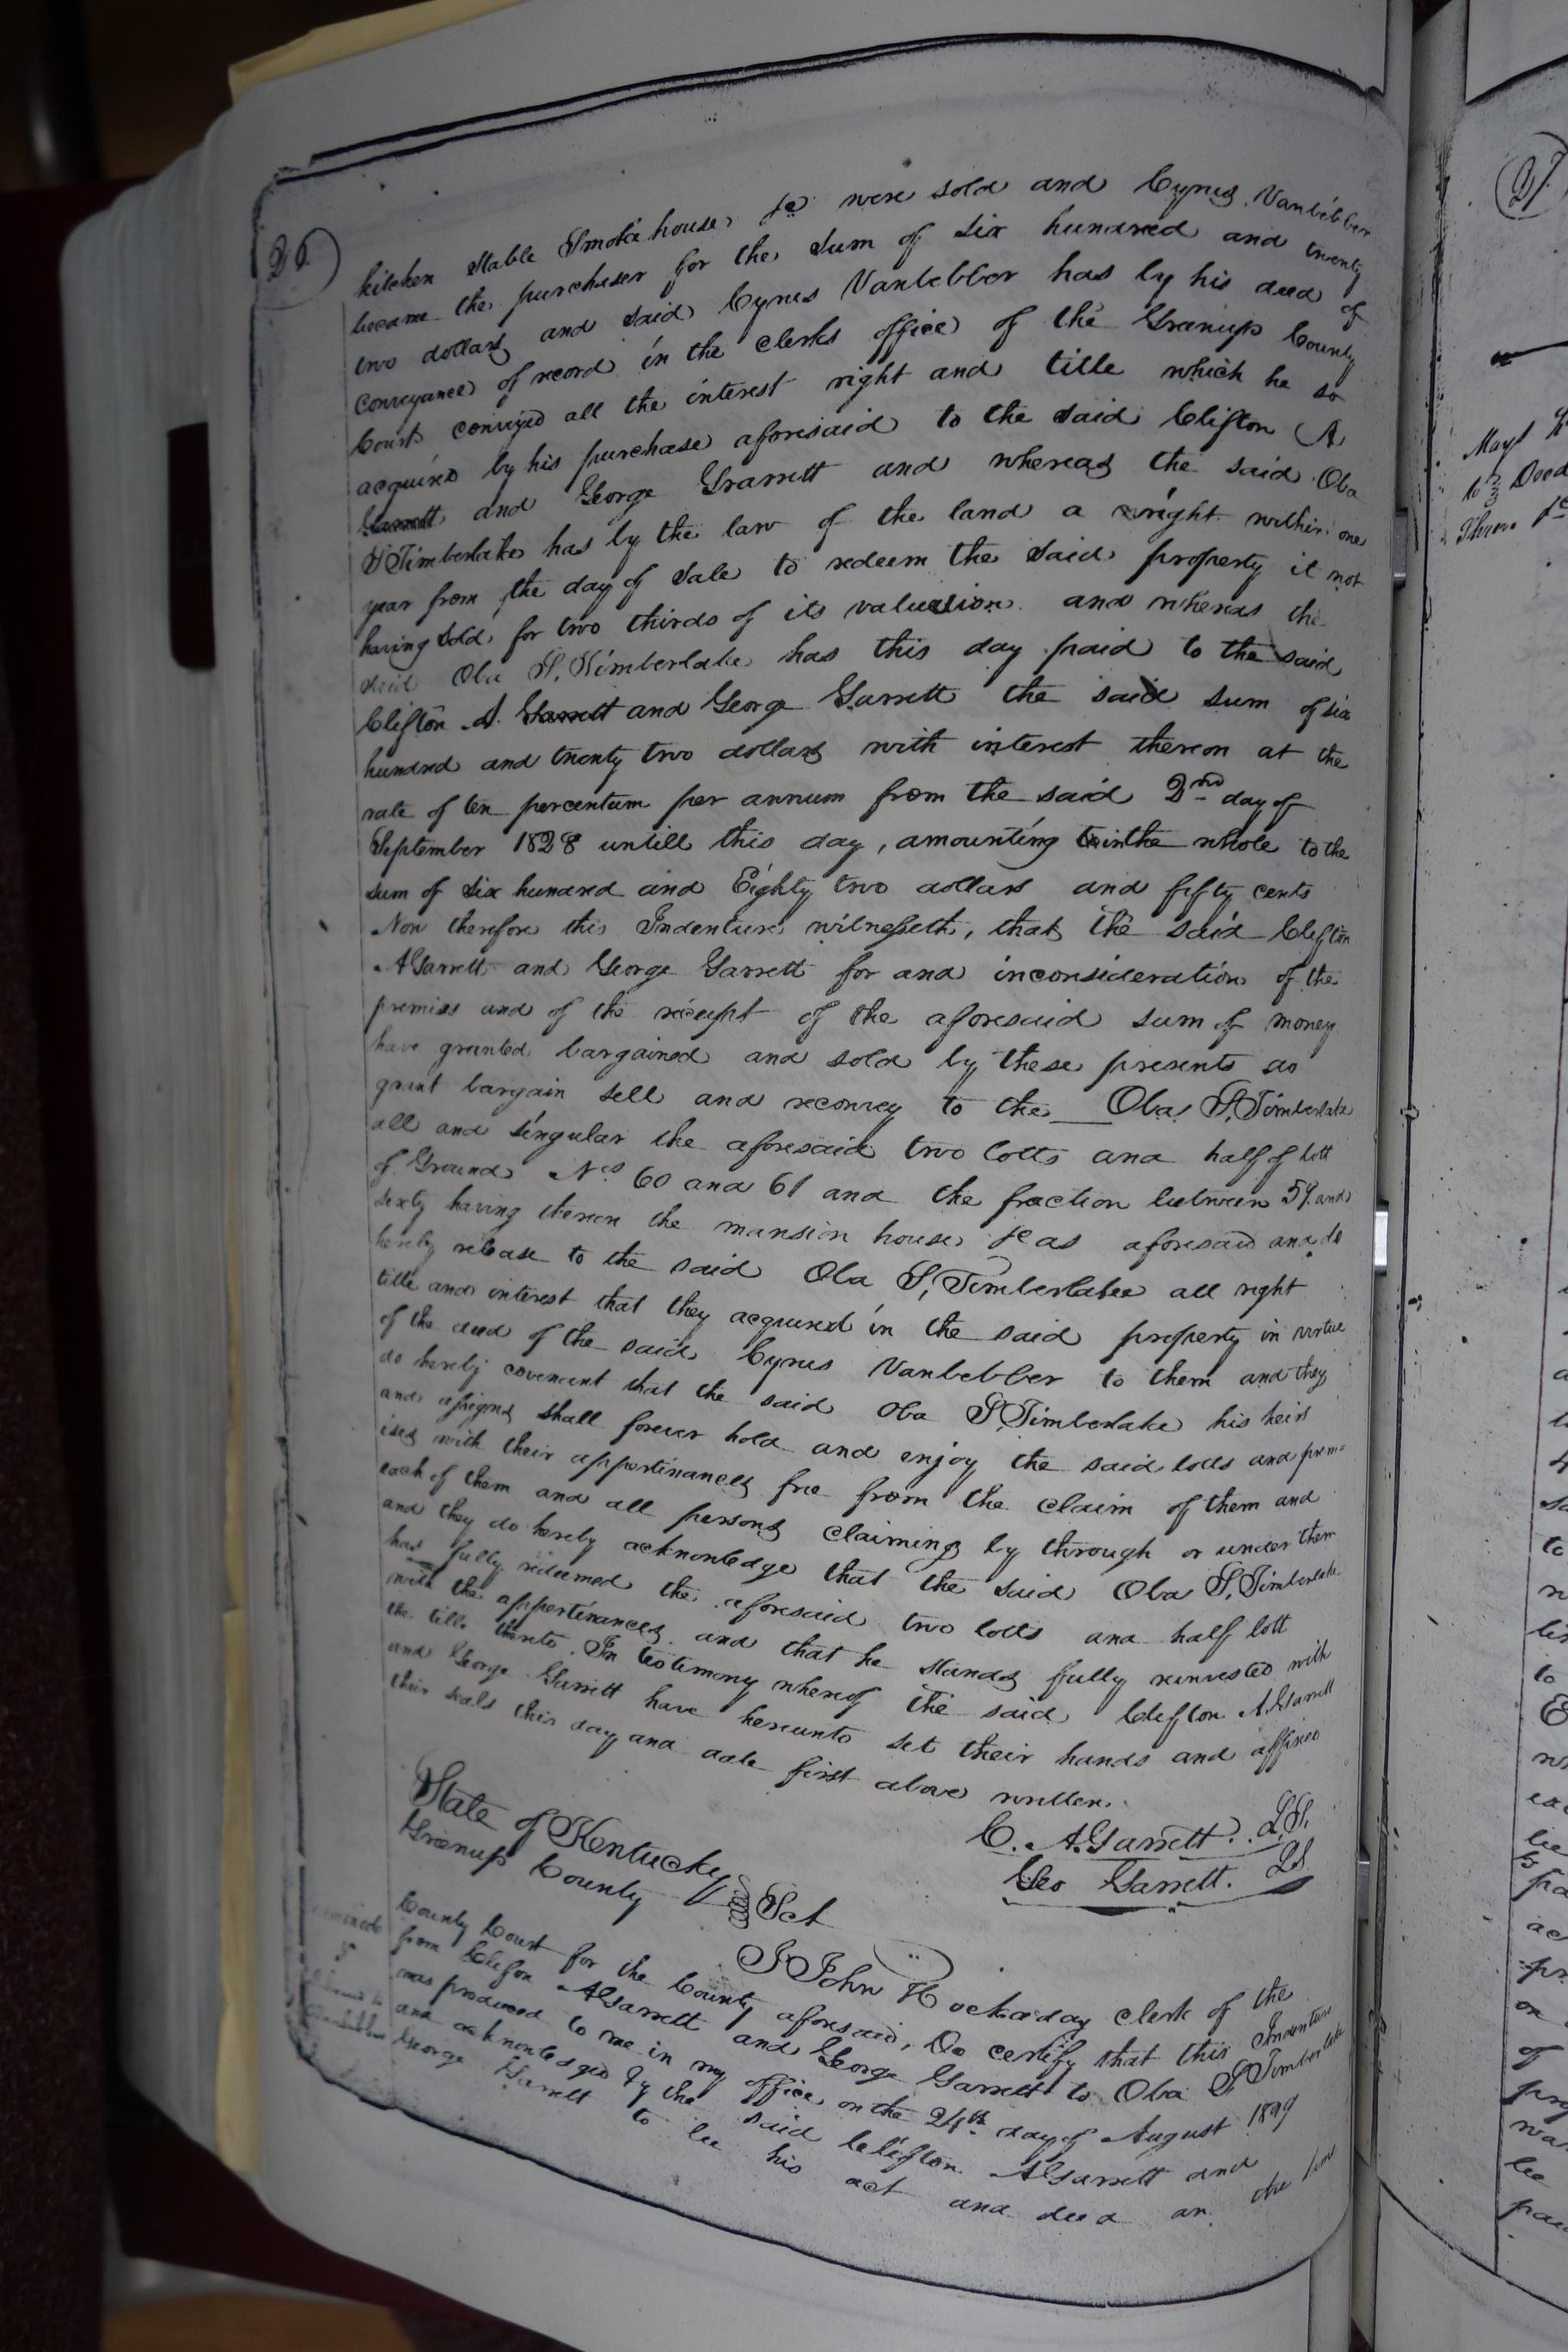 26
kitchen stable Smoke house, &c were sold and Cyrus Vanbibber
became the purchaser for the sum of six hundred and twenty
two dollars and said Cyrus Vanbebber has by his deed of
conveyance of record in the clerks office of the Greenup County
Court conveyed all the interest right and title which he so
acquired by his purchase aforesaid to the said Clifton A
Garrett and George Grarrett and whereas the said Oba
S Timberlake has by the law of the land a right within one
year from the day of sale to redeem the said property it not
having sold for two thirds of its valuation and whereas the
said Oba S, Timberlake has this day paid to the said
Clifton A. Garrett and George Garrett the said sum of six
hundred and twenty two dollars with interest thereon at the
rate of ten percentum per annum from the said 2nd day of
September 1828 untill this day, amounting in the whole to the
sum of six hundred and Eighty two dollars and fifty cents
Now therefore this Indenture witnesseth, that the said Clifton
A Garrett and George Garrett for and inconsideration of the
premises and of the receipt of the aforesaid sum of money
have granted bargained and sold by these presents do
grant bargain sell and reconvey to the Oba S, Timberlake
all and singular the aforesaid two lotts and half of lott
of Ground Nos 60 and 61 and the fraction between 59 and
sixty having thereon the mansion house &c as aforesaid and do
hereby release to the said Oba S, Timberlake all right
title and interest that they acquired in the said property in virtue
of the deed of the said Cyrus Vanbebber to them and they
do hereby covenant that the said Oba S, Timberlake his heirs
and assigns shall forever hold and enjoy the said lotts and prem=
ises with their appertinances free from the claim of them and
each of them and all persons claiming by through or under them
and they do hereby acknowledge that the said Oba S, Timberlake
has fully redeemed the aforesaid two lotts and half lott
with the appertinances and that he stands fully reinvested with
the title thereto. In testimony whereof the said Clifton A. Garrett
and George Garrett have hereunto set their hands and affixed
their seals this day and date first above written.
C. A. Garrett. L.S.
Geo Garrett. LS
State of Kentucky
Greenup County Sct
I John Hockaday clerk of the
County Court for the County aforesaid, Do certify that this Indenture
from Clifton A Garrett and George Garrett to Oba S Timberlake
was produced to me in my office on the 24th day of August 1829
and acknowledged by the said Clifton A Garrett and
George Garrett to be his act and deed an the
27
May
to Deed